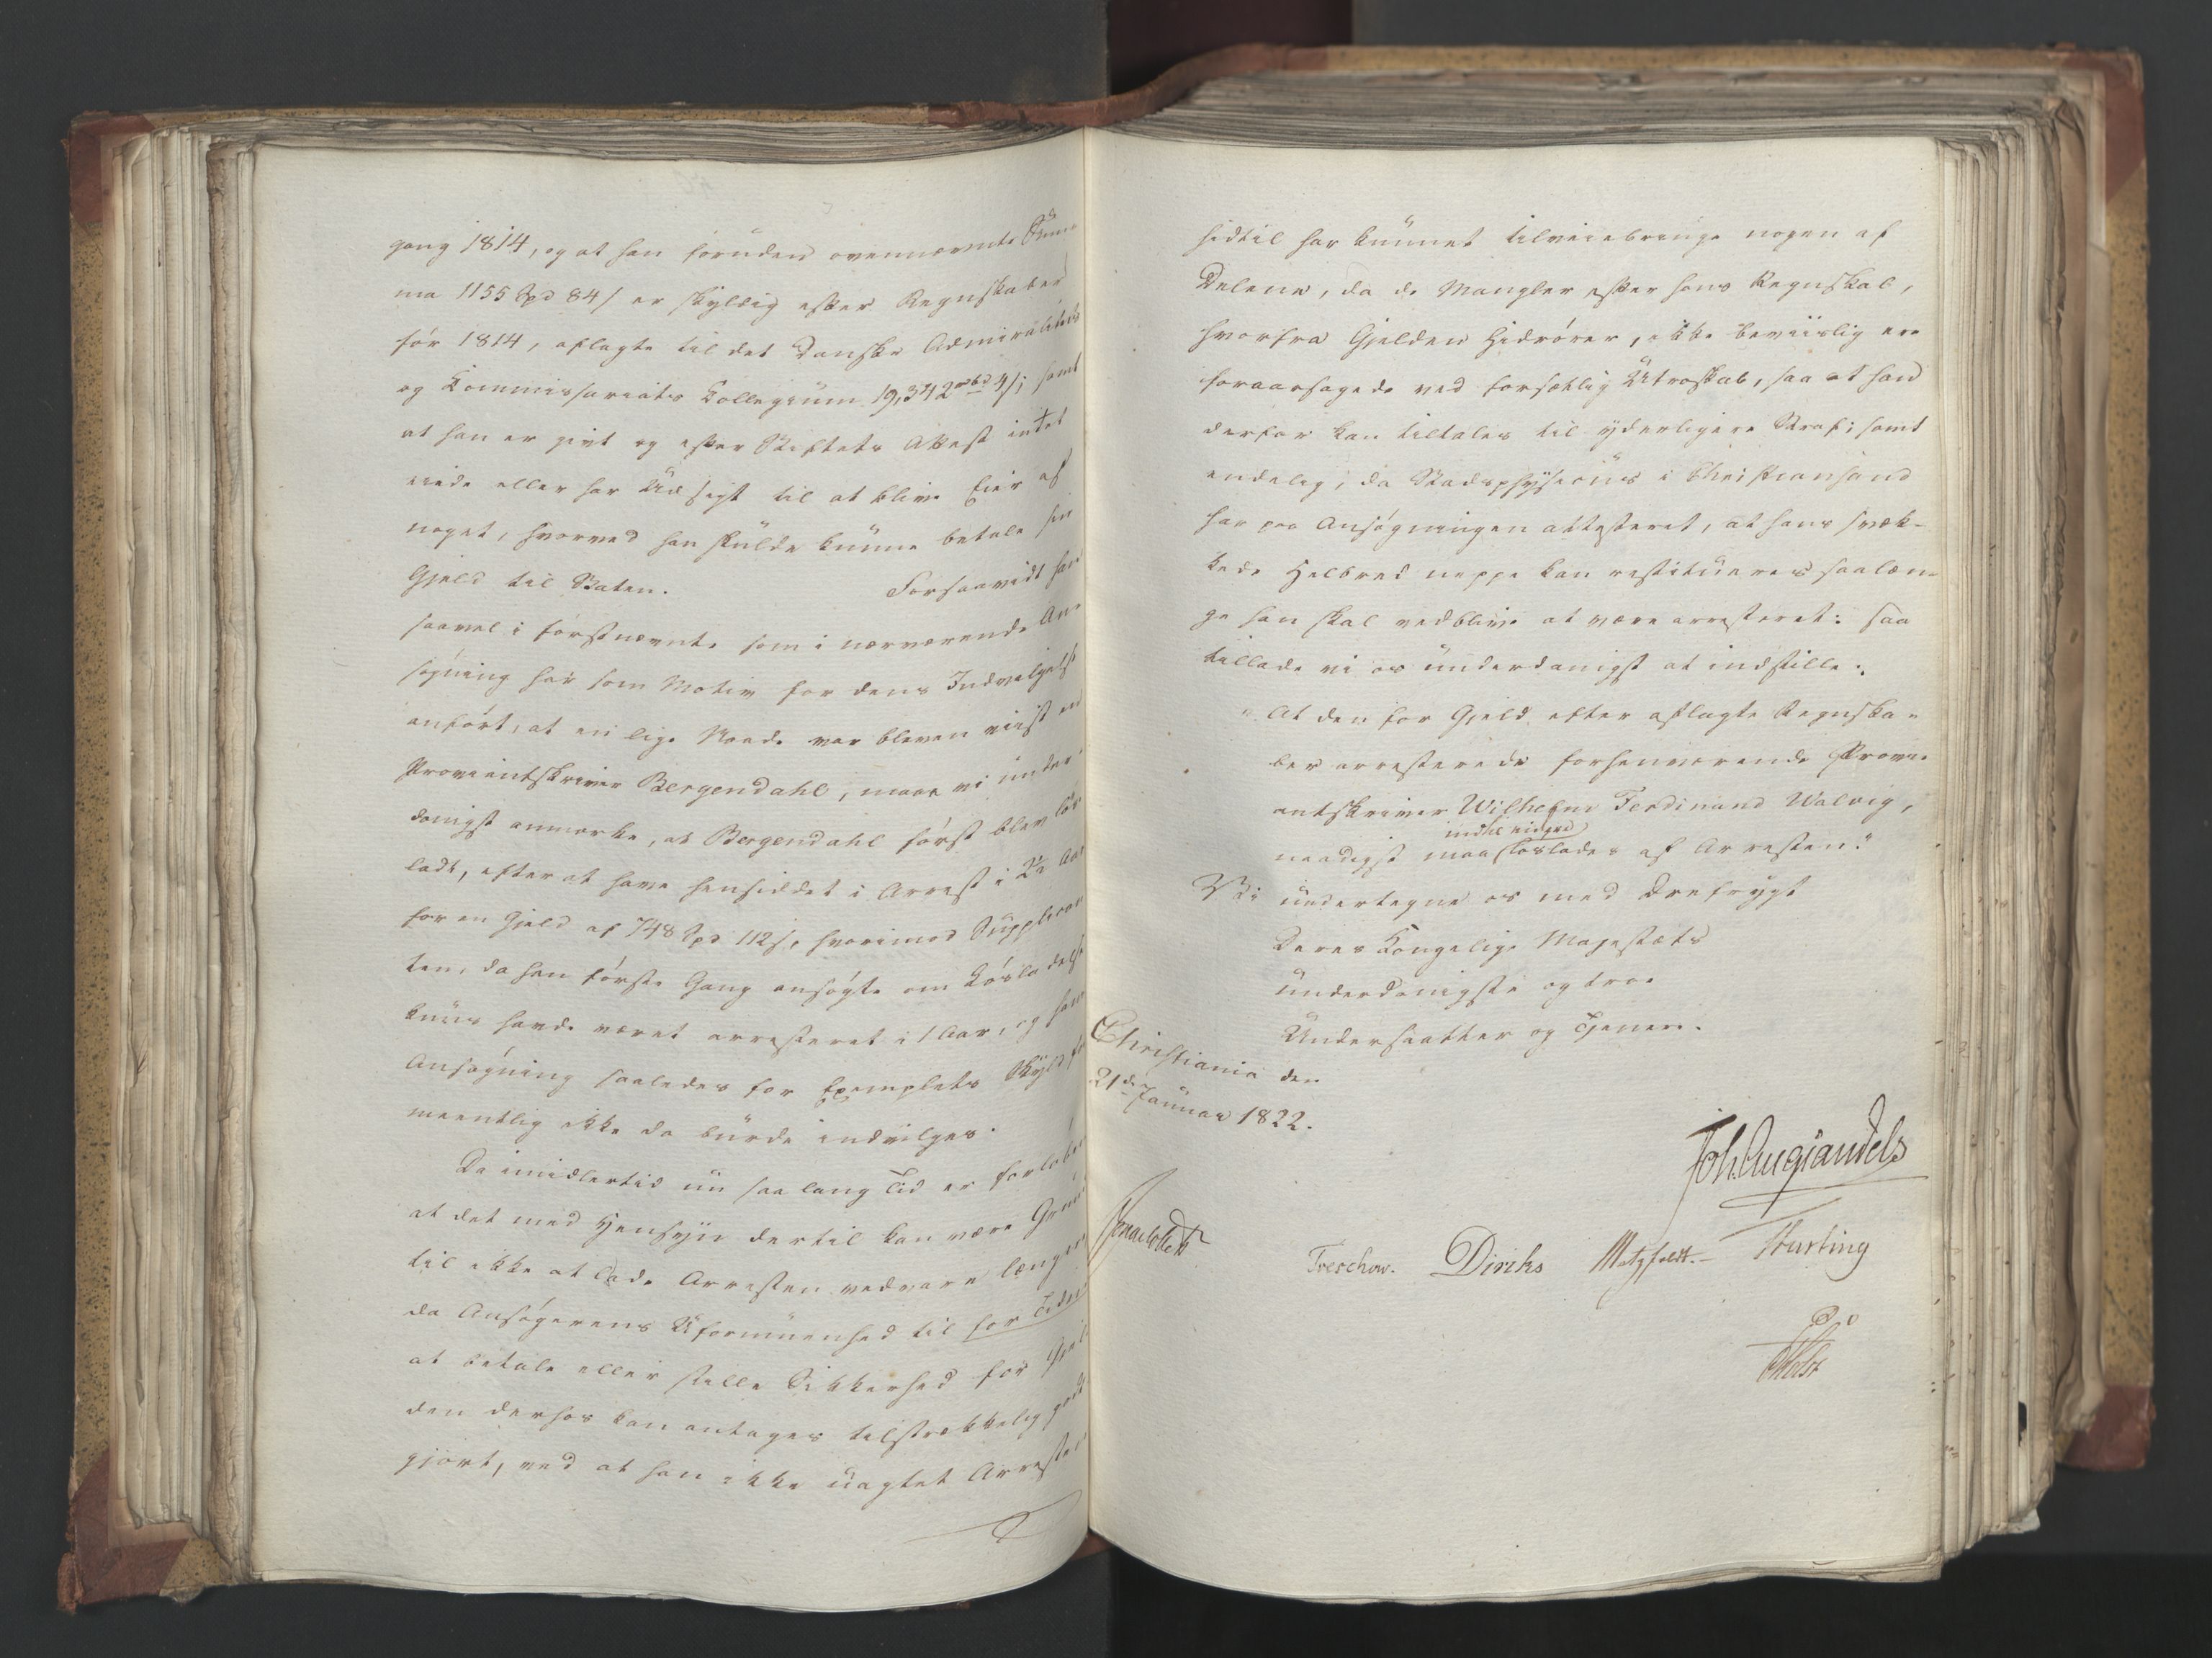 gang 1814, og at han foruden ovennævnte Sum-
ma 1155 Spd 84 s er skyldig efter Regnskaber
før 1814, aflagte til det danske Admiralitets
og Kommissariats Kollegium 19,342 rbd 4 s; samt
at han er givt og efter Skiftets Attest intet
eiede eller har Udsigt til at blive Eier af
noget, hvorved han skulde kunne betale sin
Gjeld til Staten. Forsaavidt han
saavel i førstnævnte som i nærværende An-
søgning har som Motiv for dens Indvilgelse
anført, at en lige Naade var bleven viist en
Proviantskriver Bergendahl, maae vi under-
danigst anmærke, at Bergendahl først blev løs-
ladt, efter at have hensiddet i Arrest i 2½ Aar
for en Gjeld af 748 Spd 112 s, hvorimod Supplican-
ten, da han første Gang ansøgte om Løsladelse
kuns havde været arresteret i 1 Aar, og hans
Ansøgning saaledes for Exemplets Skyld for-
meentlig ikke da burde indvilges.
Da imidlertid nu saa lang Tid er forløben
at det med Hensyn dertil kan være Grund
til ikke at lade Arresten vedvare længer
da Ansøgerens Uformuenhed til for Tiden
at betale eller stille Sikkerhed for Gjel-
den derhos kan antages tilstrækkelig godt-
gjort, ved at han ikke uagtet Arresten
hidtil har kunnet tilveiebringe nogen af
Delene, da de Mangler efter hans Regnskab,
hvorfra Gjelden hidrører, ikke beviislig ere
foraarsagede ved forsætlig Utroskab, saa at han
derfor kan tiltales til yderligere Straf; samt
endelig, da Stadsphysicus i Christiansand
har paa Ansøgningen attesteret, at hans svæk-
kede Helbred neppe kan restitueres saalæn-
ge han skal vedblive at være arresteret: saa
tillade vi os underdanigst at indstille:
"At den for Gjeld efter aflagte Regnska-
ber arresterede forhenværende Provi-
antskriver Wilhelm Ferdinand Walvig,
indtil videre
naadigst maa løslades af Arresten."
Vi undertegne os med Ærefrygt
Deres Kongelige Majestæts
underdanigste og troe
Undersaatter og Tjenere.
Christiania den
21de Januar 1822.
Joh. Aug Sandels
Treschow. Diriks Motzfeldt. Hursting
Holst